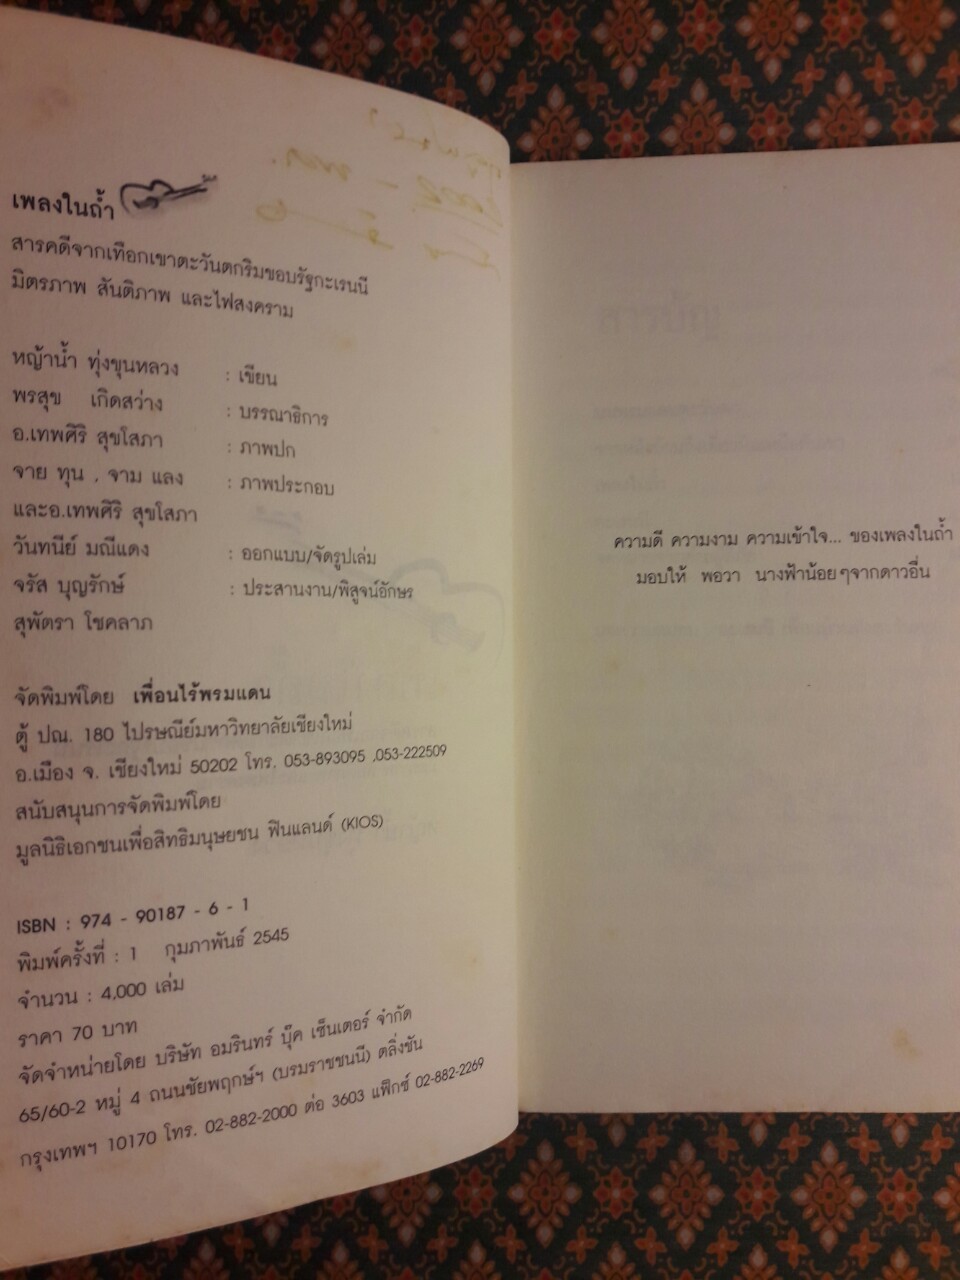 เพลงในถ้ำ
สารคดีจากเทือกเขาตะวันตกริมขอบรัฐกะเรนนี
มิตรภาพ สันติภาพ และไฟสงคราม
หญ้าน้ำ ทุ่งขุนหลวง : เขียน
พรสุข เกิดสว่าง : บรรณาธิการ
อ.เทพศิริ สุขโสภา : ภาพปก
จาย ทุน , จาม แลง : ภาพประกอบ
และอ.เทพศิริ สุขโสภา
วันทนีย์ มณีแดง : ออกแบบ/จัดรูปเล่ม
จรัส บุญรักษ์ : ประสานงาน/พิสูจน์อักษร
สุพัตรา โชคลาภ
จัดพิมพ์โดย เพื่อนไร้พรมแดน
ตู้ ปณ. 180 ไปรษณีย์มหาวิทยาลัยเชียงใหม่
อ.เมือง จ. เชียงใหม่ 50202 โทร. 053-893095 ,053-222509
สนับสนุนการจัดพิมพ์โดย
มูลนิธิเอกชนเพื่อสิทธิมนุษยชน ฟินแลนด์ (KIOS)
ISBN : 974 - 90187 - 6 - 1
พิมพ์ครั้งที่ : 1 กุมภาพันธ์ 2545
จำนวน : 4,000 เล่ม
ราคา 70 บาท
จัดจำหน่ายโดย บริษัท อมรินทร์ บุ๊ค เซ็นเตอร์ จำกัด
65/60-2 หมู่ 4 ถนนชัยพฤกษ์ฯ (บรมราชชนนี) ตลิ่งชัน
กรุงเทพฯ 10170 โทร. 02-882-2000 ต่อ 3603 แฟ็กซ์ 02-882-2269
ความดี ความงาม ความเข้าใจ... ของเพลงในถ้ำ
มอบให้ พอวา นางฟ้าน้อยๆจากดาวอื่น